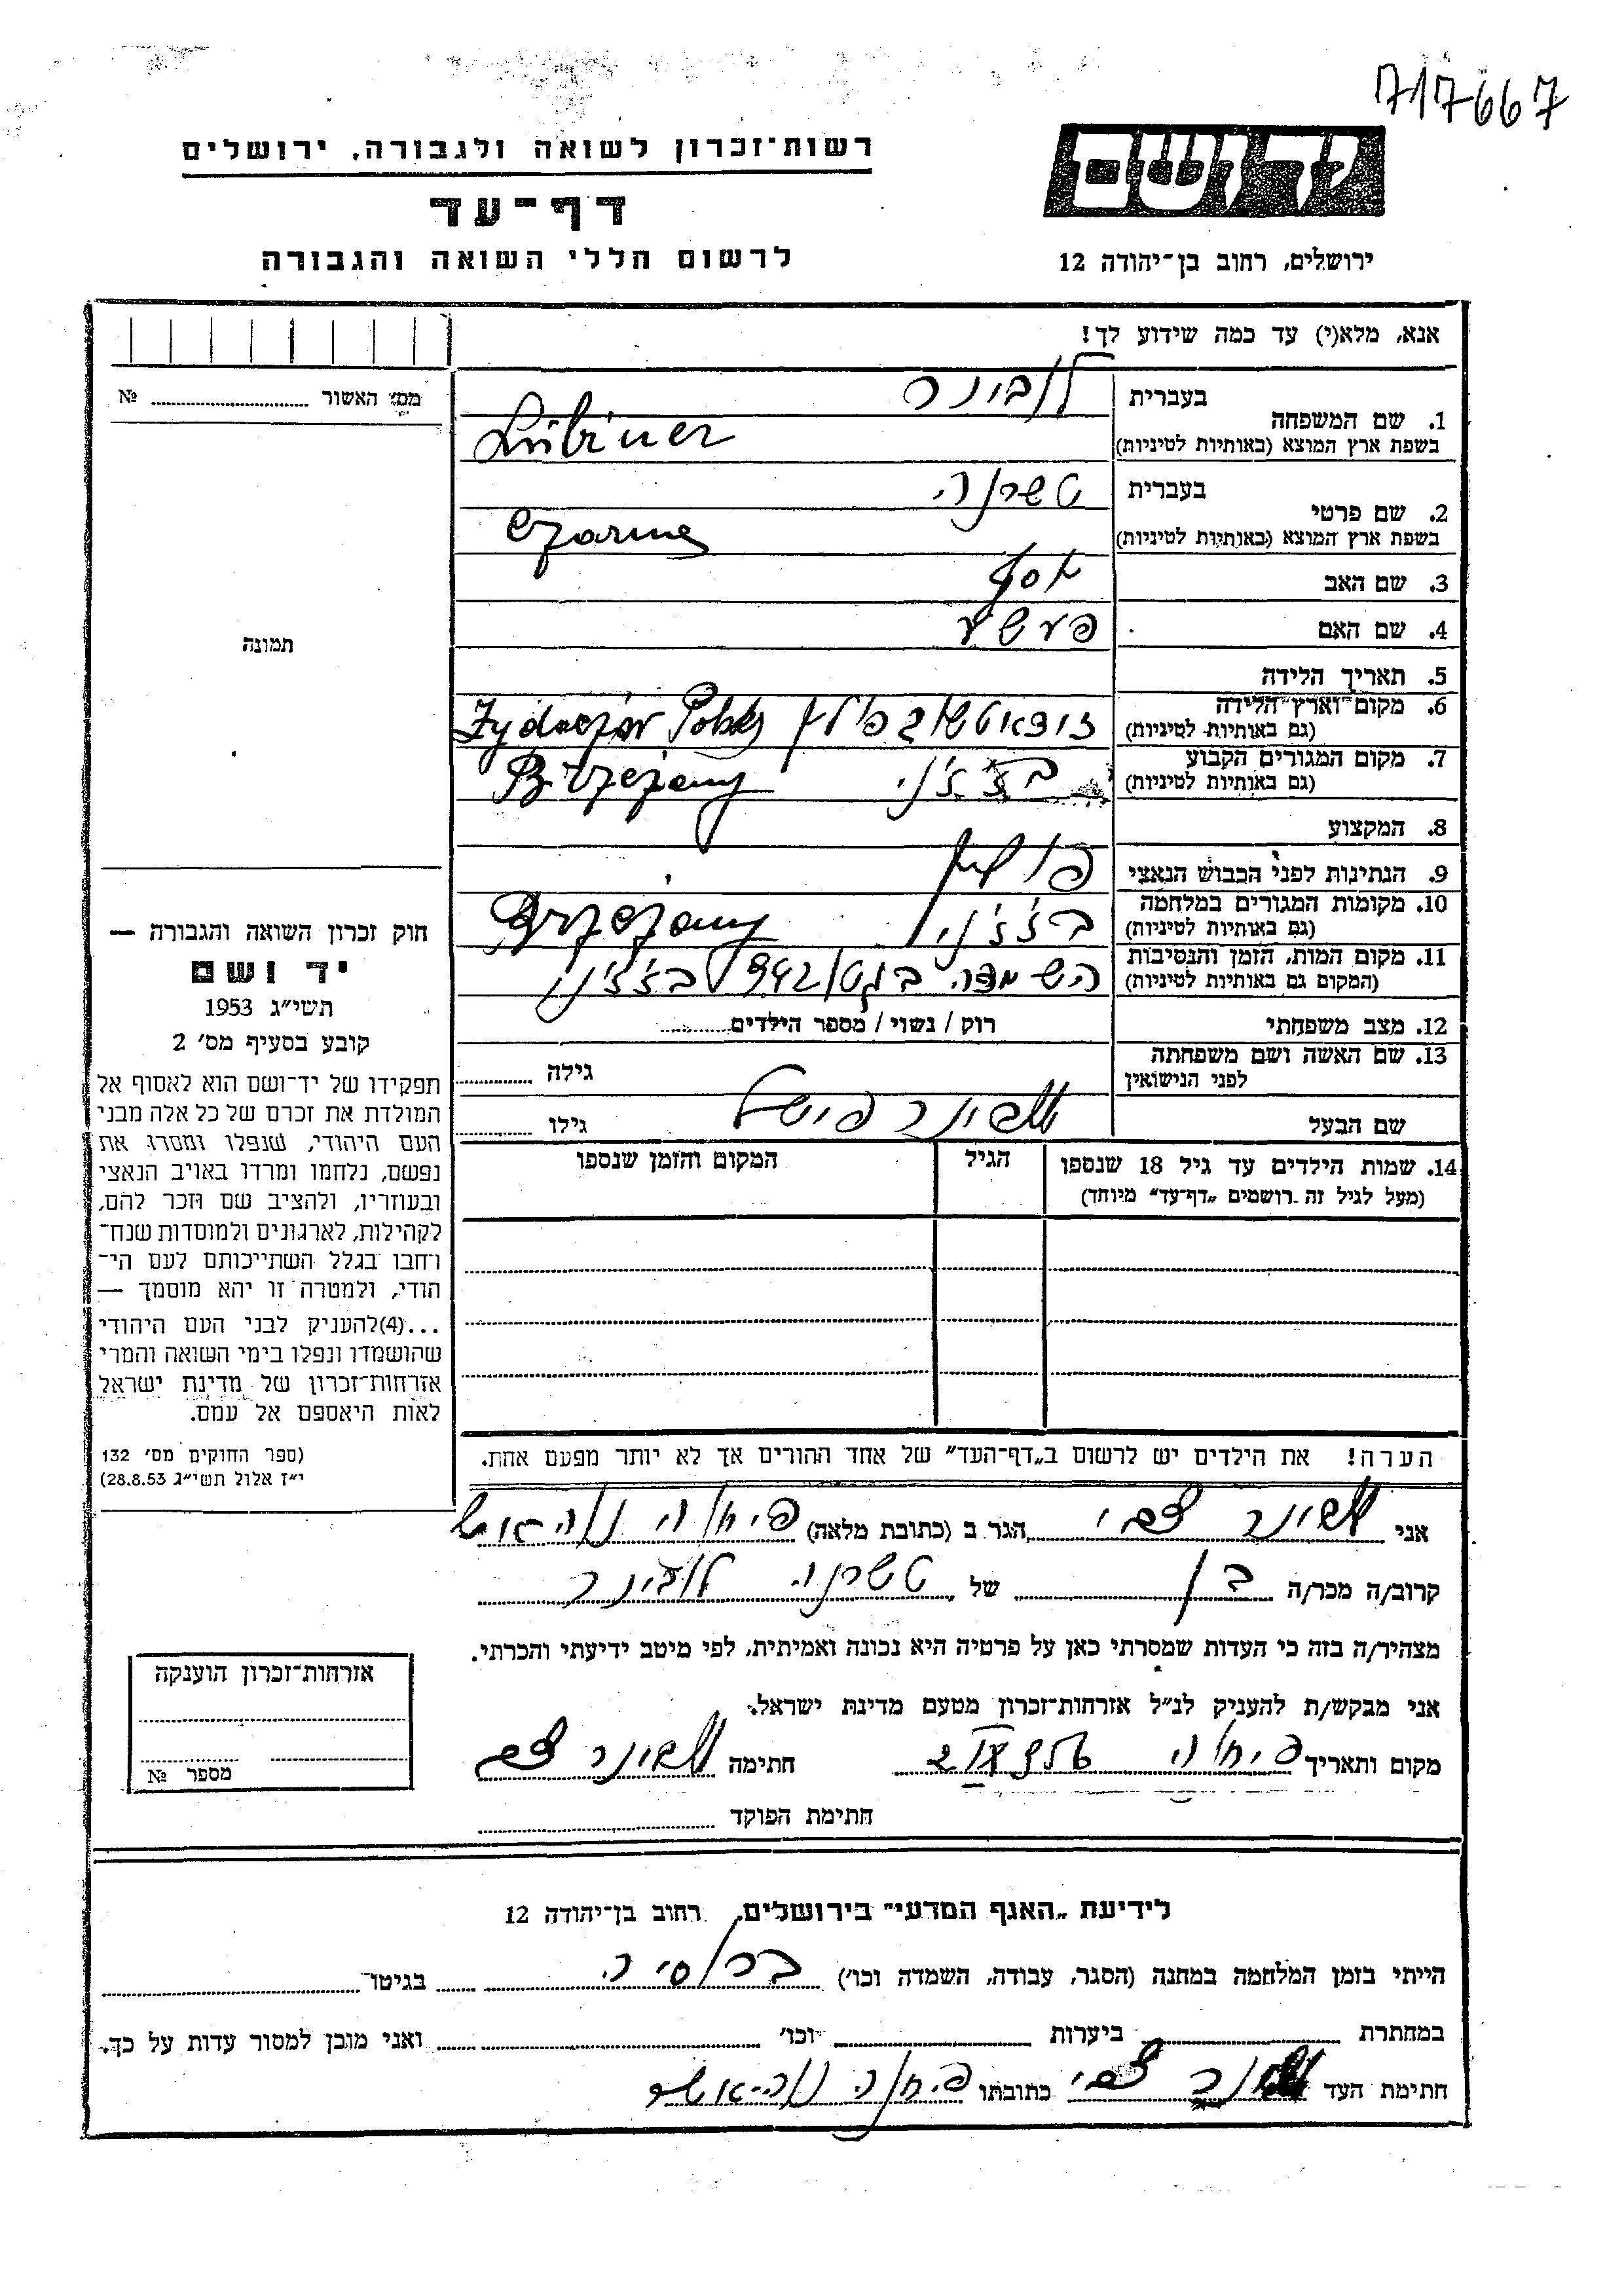 717667
רשות־זכרון לשואה ולגבורה, ירושלים
יד ושם
דף־עד
לרשום חללי השואה והגבורה
ירושלים, רחוב בן־יהודה 12
אנא, מלא(י) עד כמה שידוע לך!
מס׳ האשור № 
1. שם המשפחה
בעברית לובינר
בשפת ארץ המוצא (באותיות לטיניות) Lübiner
2. שם פרטי
בעברית טשרנה
בשפת ארץ המוצא (באותיות לטיניות) Czarne
3. שם האב
4. שם האם
5. תאריך הלידה
6. מקום וארץ הלידה
(גם באותיות לטיניות) פולין
7. מקום המגורים הקבוע
(גם באותיות לטיניות) בז׳ז׳ני Brzeżany
8. המקצוע
9. הנתינות לפני הכבוש הנאצי
10. מקומות המגורים במלחמה
(גם באותיות לטיניות) בז׳ז׳ני Brzeżany
11. מקום המות, הזמן והנסיבות
(המקום גם באותיות לטיניות) השמדה בגטו 942 בז׳ז׳ני
12. מצב משפחתי רוק / נשוי / מספר הילדים
13. שם האשה ושם משפחתה
לפני הנישואין גילה
שם הבעל לובינר פישל גילו
14. שמות הילדים עד גיל 18 שנספו
(מעל לגיל זה רושמים „דף־עד״ מיוחד)
הגיל
המקום והזמן שנספו
תמונה
חוק זכרון השואה והגבורה —
יד ושם
תשי״ג 1953
קובע בסעיף מס׳ 2
תפקידו של יד־ושם הוא לאסוף אל
המולדת את זכרם של כל אלה מבני
העם היהודי, שנפלו ומסרו את
נפשם, נלחמו ומרדו באויב הנאצי
ובעוזריו, ולהציב שם וזכר להם,
לקהילות, לארגונים ולמוסדות שנח־
רחבו בגלל השתייכותם לעם הי־
הודי, ולמטרה זו יהא מוסמך —
...(4)להעניק לבני העם היהודי
שהושמדו ונפלו בימי השואה והמרי
אזרחות־זכרון של מדינת ישראל
לאות היאספם אל עמם.
(ספר החוקים מס׳ 132
י״ז אלול תשי״ג 28.8.53)
הערה! את הילדים יש לרשום ב„דף־העד״ של אחד ההורים אך לא יותר מפעם אחת.
אני לובינר צבי הגר ב (כתובת מלאה)
קרוב/ה מכר/ה בן של טשרנה לובינר
מצהיר/ה בזה כי העדות שמסרתי כאן על פרטיה היא נכונה ואמיתית, לפי מיטב ידיעתי והכרתי.
אני מבקש/ת להעניק לנ״ל אזרחות־זכרון מטעם מדינת ישראל.
מקום ותאריך חתימה לובינר צבי
חתימת הפוקד
אזרחות־זכרון הוענקה
מספר №
לידיעת „האגף המדעי״ בירושלים, רחוב בן־יהודה 12
הייתי בזמן המלחמה במחנה (הסגר, עבודה, השמדה וכו׳) ברוסיה בגיטו
במחתרת ביערות וכו׳ ואני מוכן למסור עדות על כך.
חתימת העד צבי כתובתו